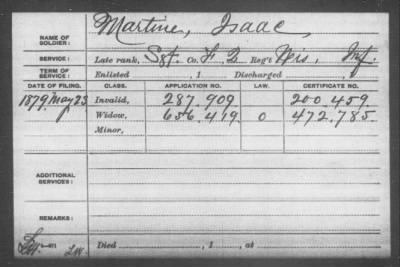 NAME OF SOLDIER: Martine, Isaac,
SERVICE: Late rank, Sgt. Co. F, 2 Reg't Wis, Inf.
TERM OF SERVICE: Enlisted , 1 Discharged , 1
DATE OF FILING. CLASS. APPLICATION NO. LAW. CERTIFICATE NO.
1879, May 23 Invalid, 287.909 200.459.
Widow, 656.419 0 472.785.
Minor,
ADDITIONAL SERVICES:
REMARKS:
Died , 1 , at